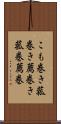 こも巻き菰
巻き薦巻き
菰巻薦巻